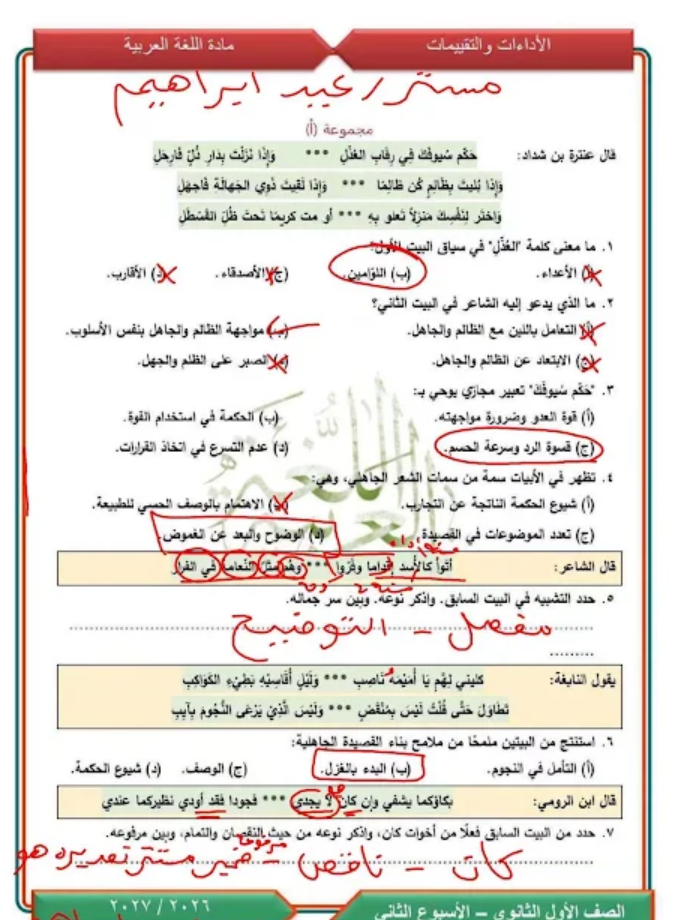 الأداءات والتقييمات
مادة اللغة العربية
مستر / عبيد ابراهيم
مجموعة (أ)
قال عنترة بن شداد: حَكِّم سُيوفَكَ في رِقابِ العُذَّلِ *** وَإِذا نَزَلتَ بِدارِ ذُلٍّ فَارحَلِ
وَإِذا بُليتَ بِظالِمٍ كُن ظالِمًا *** وَإِذا لَقيتَ ذَوي الجَهالَةِ فَاجهَلِ
وَاختَر لِنَفسِكَ مَنزِلاً تَعلو بِهِ *** أَو مت كَريمًا تَحتَ ظِلِّ القَسطَلِ
١. ما معنى كلمة "العُذَّلِ" في سياق البيت الأول؟
(أ) الأعداء. (ب) اللوّامين. (ج) الأصدقاء. (د) الأقارب.
٢. ما الذي يدعو إليه الشاعر في البيت الثاني؟
(أ) التعامل باللين مع الظالم والجاهل. (ب) مواجهة الظالم والجاهل بنفس الأسلوب.
(ج) الابتعاد عن الظالم والجاهل. (د) الصبر على الظلم والجهل.
٣. "حَكِّم سُيوفَكَ" تعبير مجازي يوحي بـ:
(أ) قوة العدو وضرورة مواجهته. (ب) الحكمة في استخدام القوة.
(ج) قسوة الرد وسرعة الحسم. (د) عدم التسرع في اتخاذ القرارات.
٤. تظهر في الأبيات سمة من سمات الشعر الجاهلي، وهي:
(أ) شيوع الحكمة الناتجة عن التجارب. (ب) الاهتمام بالوصف الحسي للطبيعة.
(ج) تعدد الموضوعات في القصيدة. (د) الوضوح والبعد عن الغموض.
قال الشاعر: أتوا كالأسد إقداما وفروا *** وهم مثل النعامة في الفرار
٥. حدد التشبيه في البيت السابق. واذكر نوعه. وبين سر جماله.
مفصل - التوضيح
يقول النابغة: كِليني لِهَمٍّ يا أُمَيمَة ناصِبِ *** وَلَيلٍ أُقاسيهِ بَطيءِ الكَواكِبِ
تَطاوَلَ حَتّى قُلتُ لَيسَ بِمُنقَضٍ *** وَلَيسَ الَّذي يَرعى النُجومَ بِآيِبِ
٦. استنتج من البيتين ملمحًا من ملامح بناء القصيدة الجاهلية:
(أ) التأمل في النجوم. (ب) البدء بالغزل. (ج) الوصف. (د) شيوع الحكمة.
قال ابن الرومي: بكاؤكما يشفي وإن كان لا يجدي *** فجودا فقد أودى نظيركما عندي
٧. حدد من البيت السابق فعلًا من أخوات كان، واذكر نوعه من حيث النقصان والتمام، وبين مرفوعه.
كان - ناقص - مرفوعها ضمير مستتر تقديره هو
الصف الأول الثانوي – الأسبوع الثاني
٢٠٢٦ / ٢٠٢٧